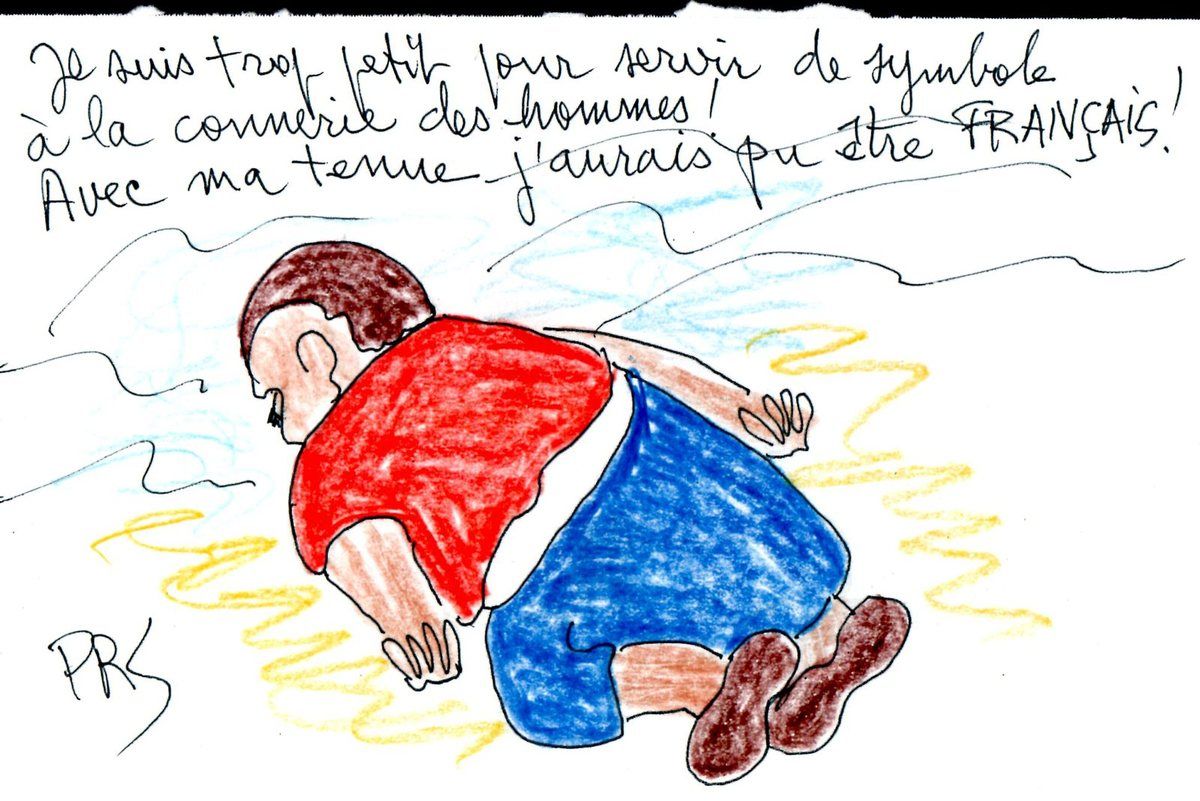 Je suis trop petit pour servir de symbole
à la connerie des hommes!
Avec ma tenue j'aurais pu être FRANÇAIS!
PRS